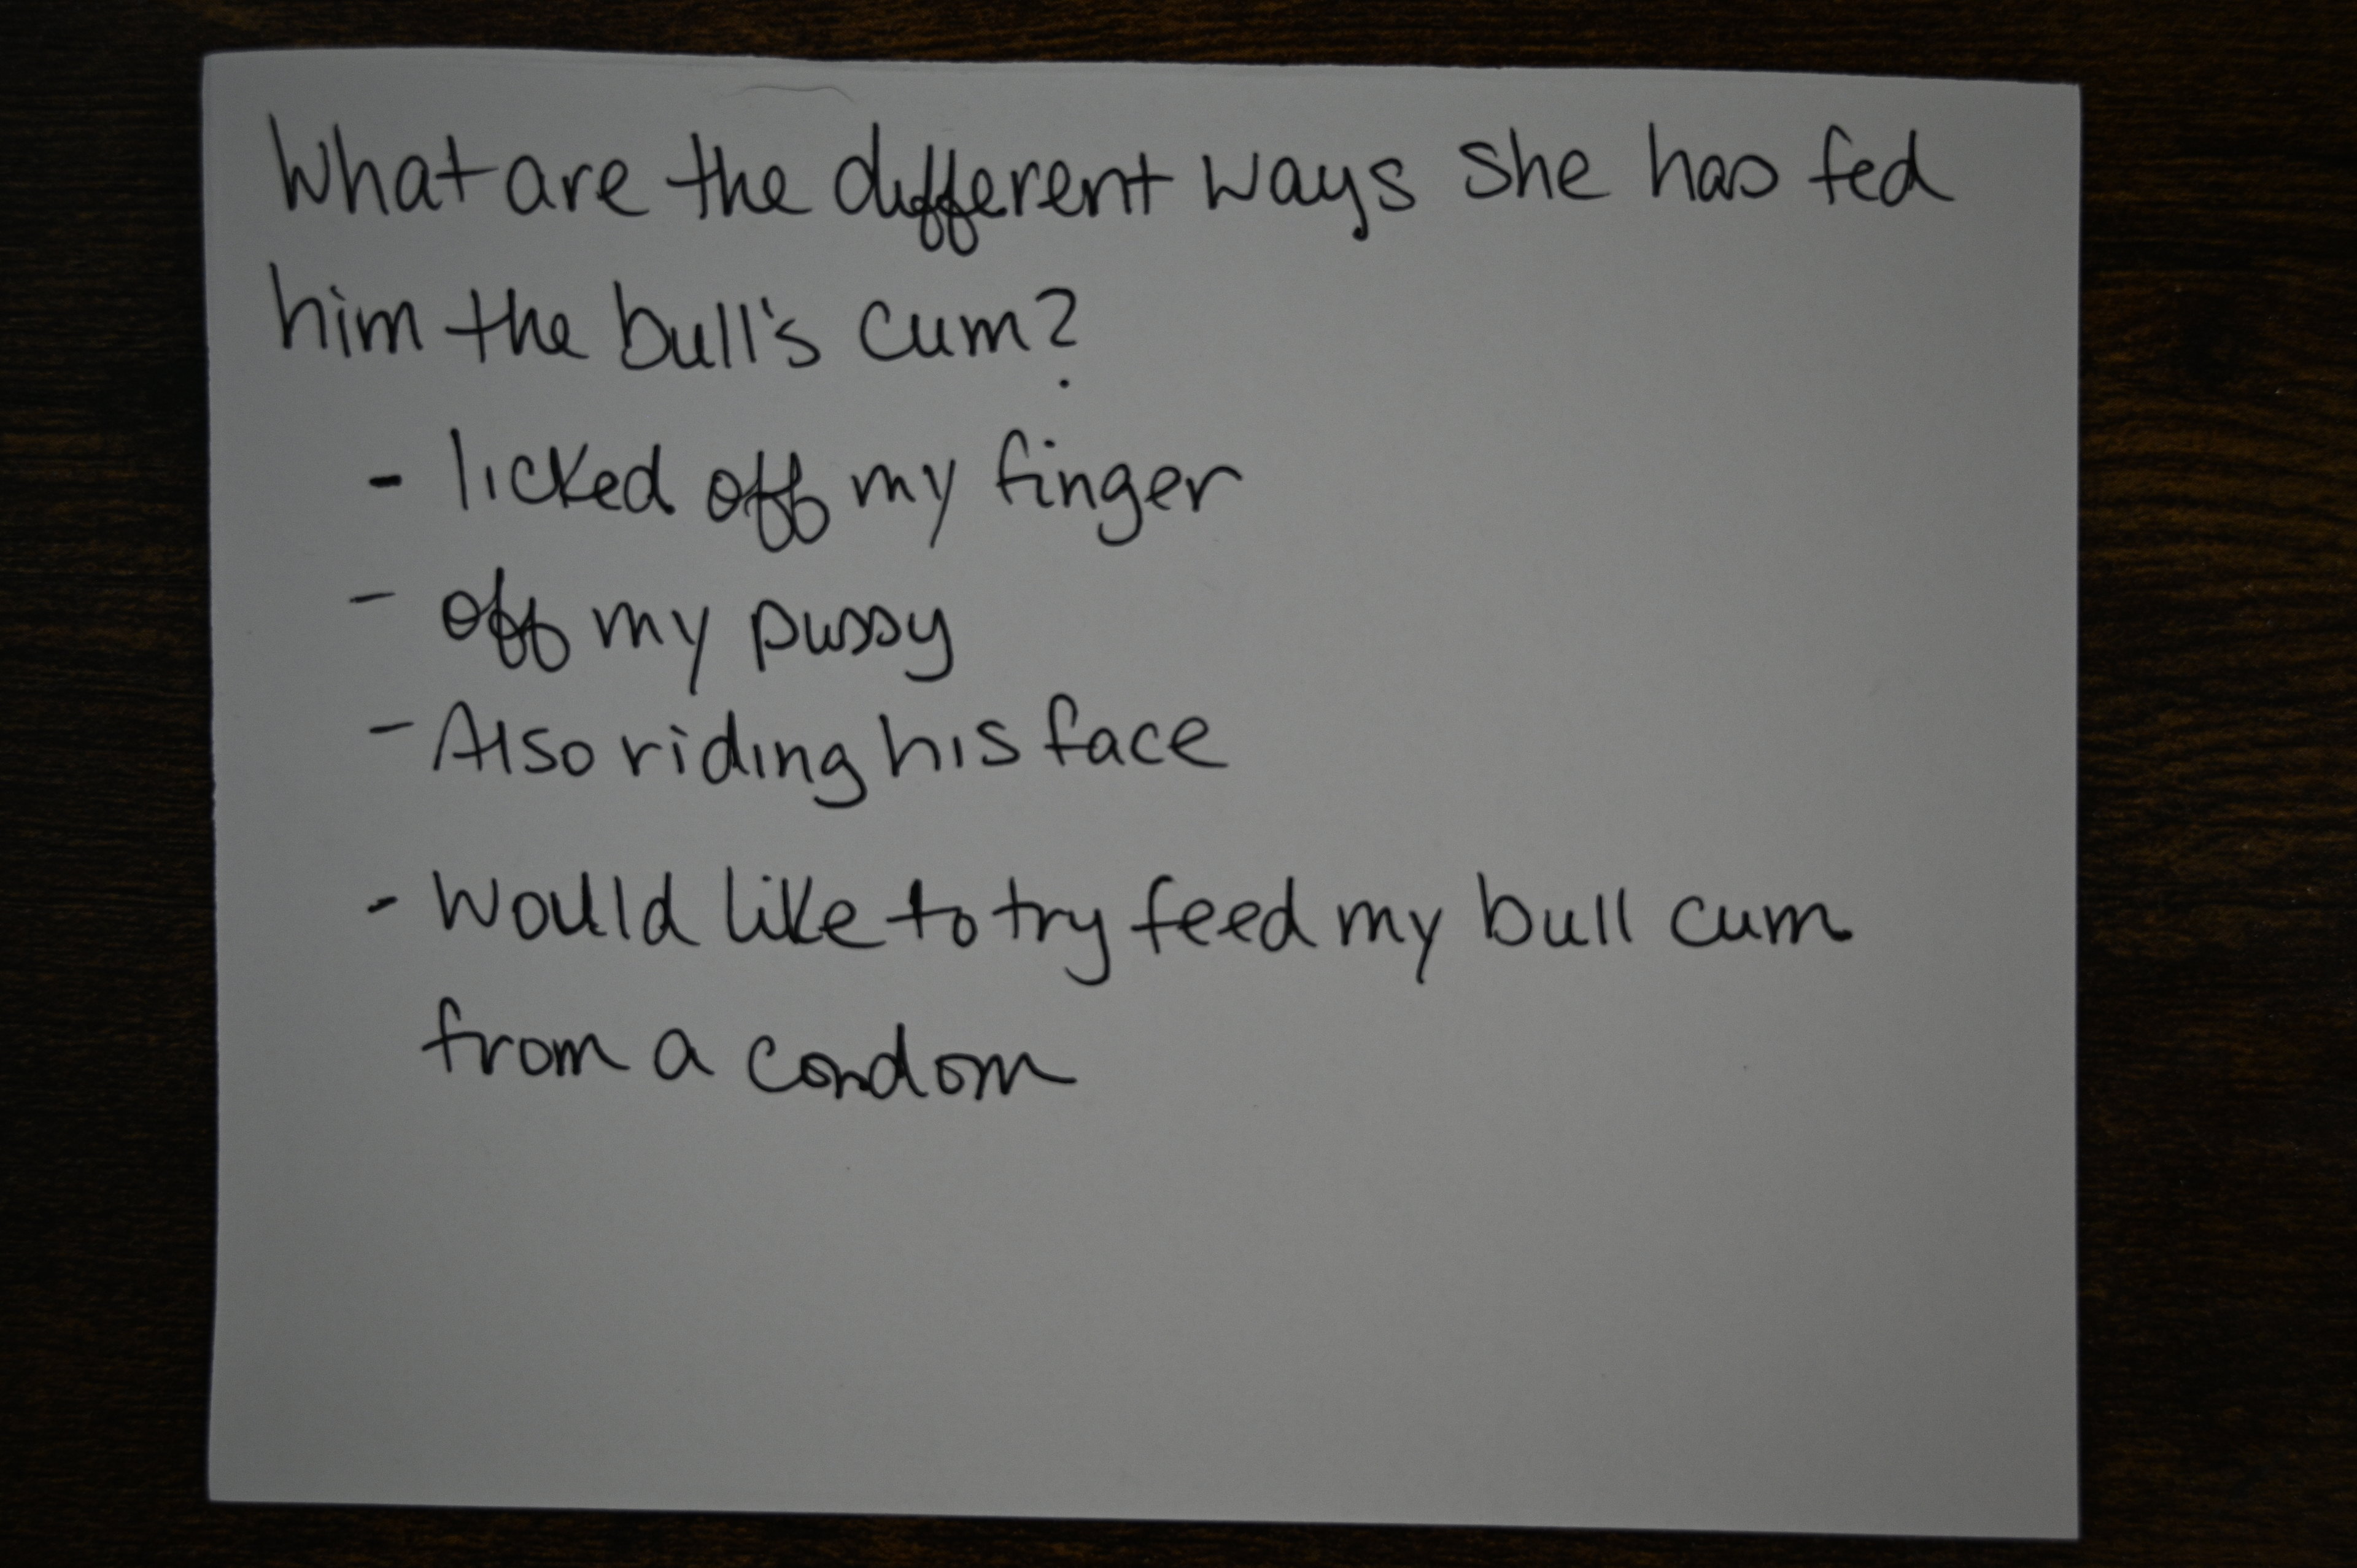 What are the different ways she has fed
him the bull's cum?
- licked off my finger
- off my pussy
- Also riding his face
- Would like to try feed my bull cum
from a condom